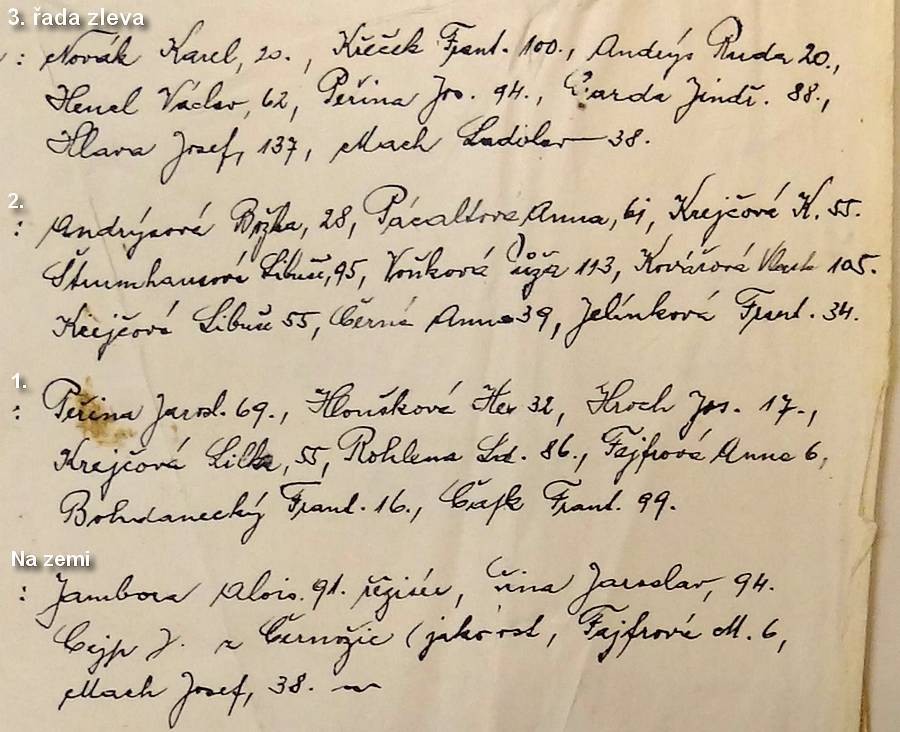 3. řada zleva
: Novák Karel, 20., Křeček Frant. 100., Andrýs Ruda 20.,
Henel Václav, 62, Peřina Jos. 94., Čarda Jindř. 88.,
Hlava Josef, 137, Mach Ladislav 38.
2.
: Andrýsová Božka, 28, Pácaltová Anna, 61, Krejčová K. 55.
Štrumhausová Libuše, 95, Voňková Růža 113, Kovářová Vlasta 105.
Krejčová Libuše 55, Černá Anna 39, Jelínková Frant. 34.
1.
: Peřina Jarosl. 69., Hloušková 32, Hroch Jos. 17.,
Krejčová Lilka, 55, Rohlena Lad. 86., Fajfrová Anna 6,
Bohdanecký Frant. 16., Čajk Frant. 99.
Na zemi
: Jambora Alois. 91. režisér, Jaroslav, 94.
Cejp J. z Černožic (jako host, Fajfrová M. 6,
Mach Josef, 38.